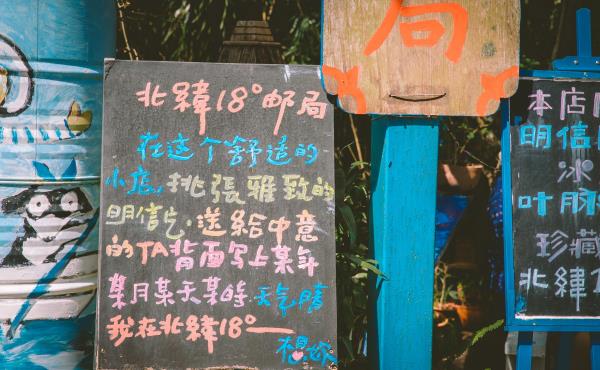 局
北緯18°邮局
在这个舒适的
小店,挑張雅致的
明信片,送給中意
的TA背面写上某年
某月某天某的天气晴
我在北緯18°—
想你
本店
明信
冰
叶脉
珍藏
北緯1